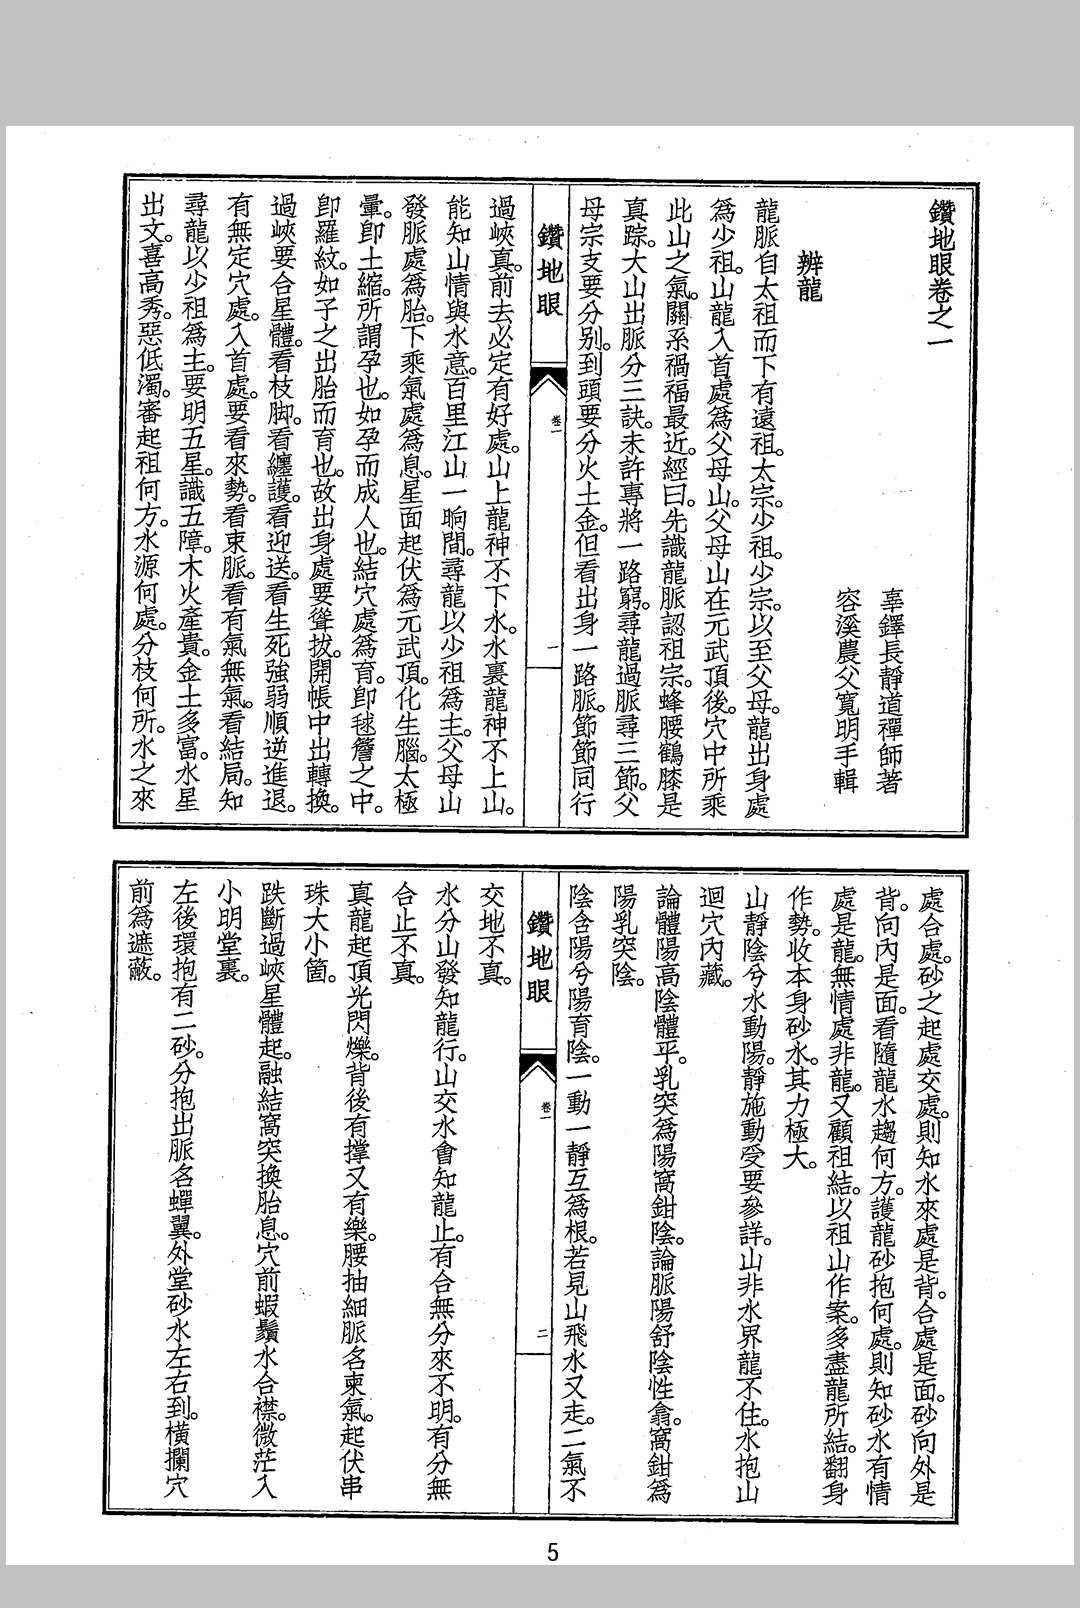 鑽地眼卷之一
辜鐸長靜道禪師著
容溪農父寬明手輯
辨龍
龍脈自太祖而下有遠祖。太宗。少祖。少宗。以至父母。龍出身處
為少祖。山龍入首處為父母山。父母山在元武頂後。穴中所乘
此山之氣。關系禍福最近。經曰。先識龍脈認祖宗。蜂腰鶴膝是
真踪。大山出脈分三訣。未許專將一路窮。尋龍過脈尋三節。父
母宗支要分別。到頭要分火土金。但看出身一路脈。節節同行
鑽地眼
卷一
一
過峽真。前去必定有好處。山上龍神不下水。水裏龍神不上山。
能知山情與水意。百里江山一晌間。尋龍以少祖為主。父母山
發脈處為胎。下乘氣處為息。星面起伏為元武頂。化生腦。太極
暈。卽土縮。所謂孕也。如孕而成人也。結穴處為育。卽毬簷之中。
卽羅紋。如子之出胎而育也。故出身處要聳拔。開帳中出轉換。
過峽要合星體。看枝脚。看纏護。看迎送。看生死強弱順逆進退。
有無定穴處。入首處。要看來勢。看束脈。看有氣無氣。看結局。知
尋龍以少祖為主。要明五星。識五障。木火產貴。金土多富。水星
出文。喜高秀。惡低濁。審起祖何方。水源何處。分枝何所。水之來
處合處。砂之起處交處。則知水來處是背。合處是面。砂向外是
背。向內是面。看隨龍水趨何方。護龍砂抱何處。則知砂水有情
處是龍。無情處非龍。又顧祖結。以祖山作案。多盡龍所結。翻身
作勢。收本身砂水。其力極大。
山靜陰兮水動陽。靜施動受要參詳。山非水界龍不住。水抱山
迴穴內藏。
論體陽高陰體平。乳突為陽窩鉗陰。論脈陽舒陰性翕。窩鉗為
陽乳突陰。
陰含陽兮陽育陰。一動一靜互為根。若見山飛水又走。二氣不
鑽地眼
卷一
二
交地不真。
水分山發知龍行。山交水會知龍止。有合無分來不明。有分無
合止不真。
真龍起頂光閃爍。背後有撐又有樂。腰抽細脈名束氣。起伏串
珠大小箇。
跌斷過峽星體起。融結窩突換胎息。穴前蝦鬚水合襟。微茫入
小明堂裏。
左後環抱有二砂。分抱出脈名蟬翼。外堂砂水左右到。橫攔穴
前為遮蔽。
5